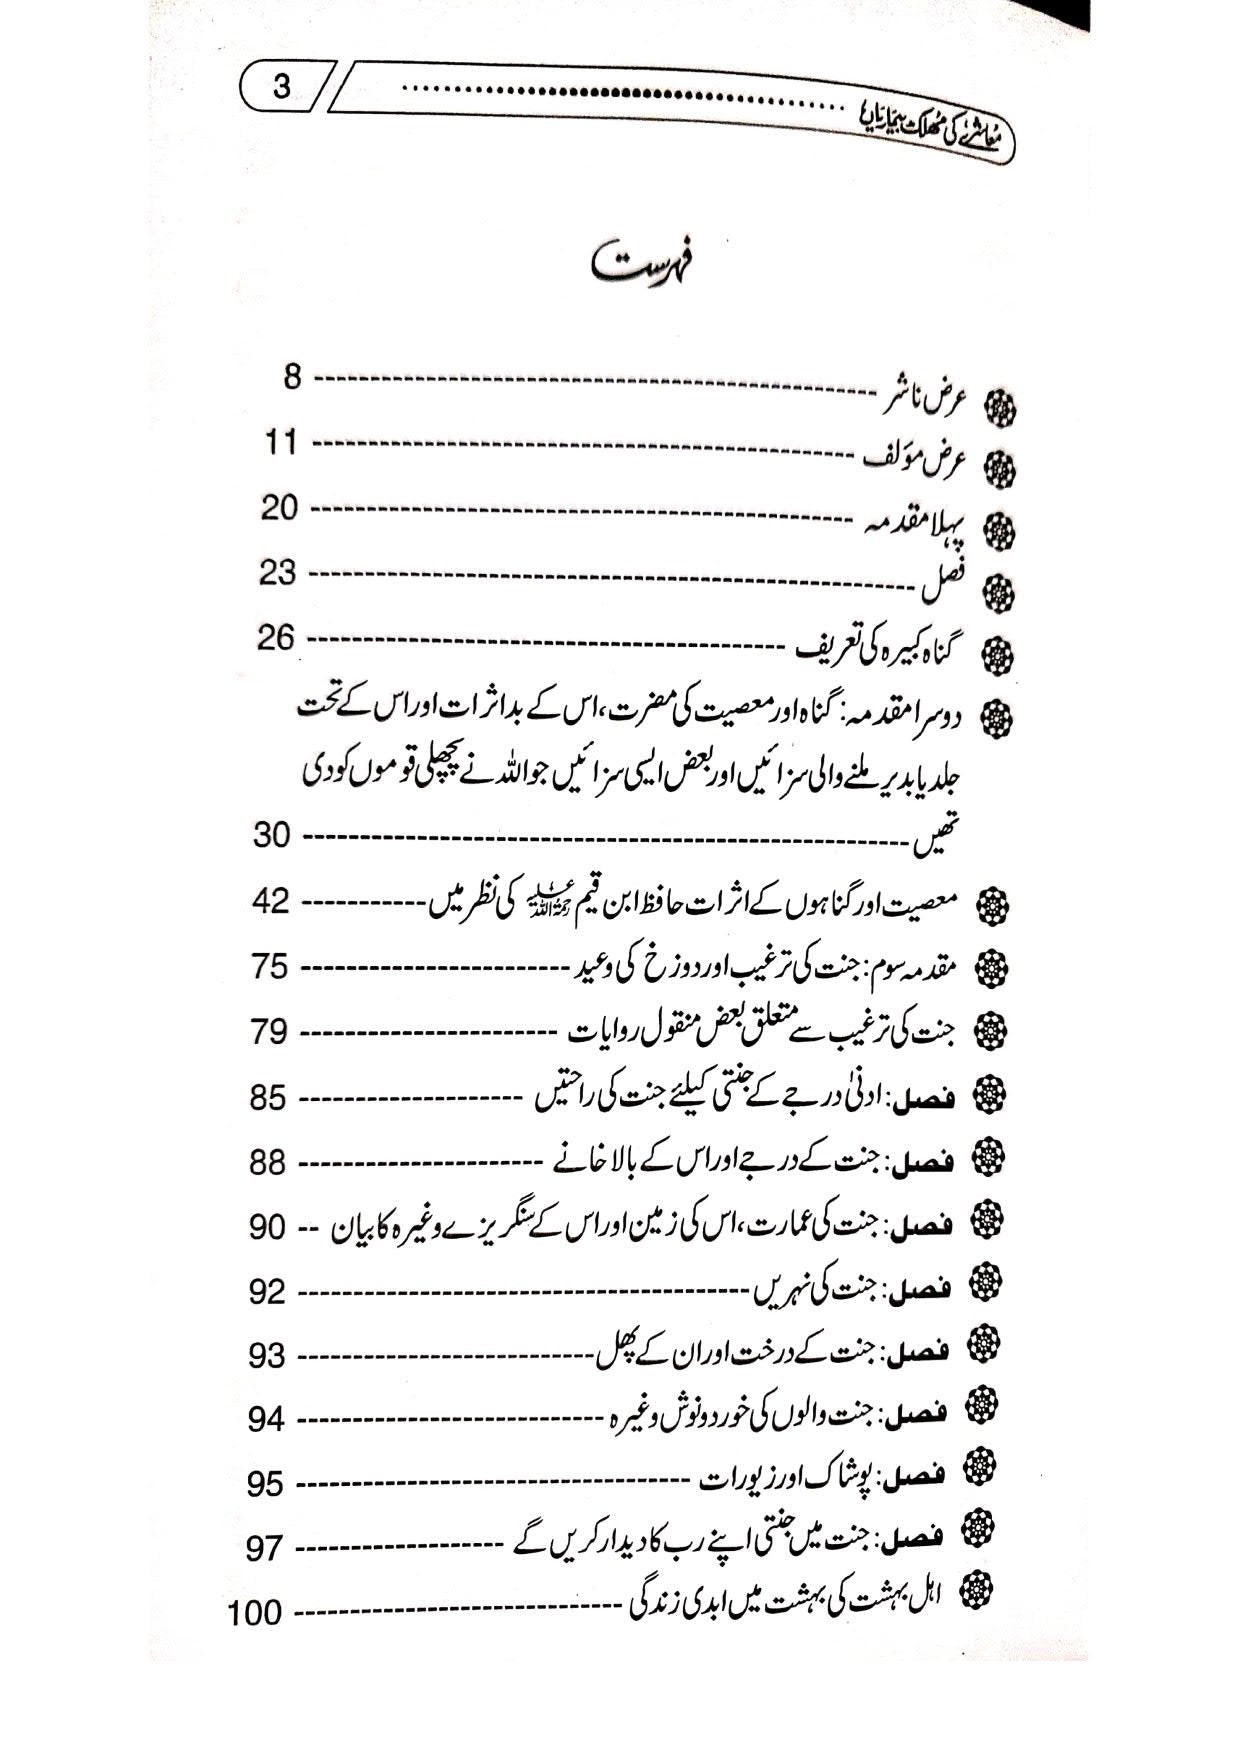 معاشرے کی مہلک بیماریاں ........................................ 3
فہرست
عرض ناشر ---------------------------------------- 8
عرض مؤلف ---------------------------------------- 11
پہلا مقدمہ ---------------------------------------- 20
فصل ---------------------------------------- 23
گناہ کبیرہ کی تعریف ---------------------------------------- 26
دوسرا مقدمہ: گناہ اور معصیت کی مضرت، اس کے بد اثرات اور اس کے تحت
جلد یا بدیر ملنے والی سزائیں اور بعض ایسی سزائیں جو اللہ نے پچھلی قوموں کو دی
تھیں ---------------------------------------- 30
معصیت اور گناہوں کے اثرات حافظ ابن قیم رحمۃ اللہ علیہ کی نظر میں ----------- 42
مقدمہ سوم: جنت کی ترغیب اور دوزخ کی وعید ------------------------ 75
جنت کی ترغیب سے متعلق بعض منقول روایات ----------------------- 79
فصل: ادنیٰ درجے کے جنتی کیلئے جنت کی راحتیں -------------------- 85
فصل: جنت کے درجے اور اس کے بالا خانے ---------------------- 88
فصل: جنت کی عمارت، اس کی زمین اور اس کے سنگریزے وغیرہ کا بیان -- 90
فصل: جنت کی نہریں ---------------------------------------- 92
فصل: جنت کے درخت اور ان کے پھل -------------------------- 93
فصل: جنت والوں کی خورد و نوش وغیرہ --------------------------- 94
فصل: پوشاک اور زیورات ----------------------------------- 95
فصل: جنت میں جنتی اپنے رب کا دیدار کریں گے ------------------- 97
اہل بہشت کی بہشت میں ابدی زندگی ----------------------------- 100